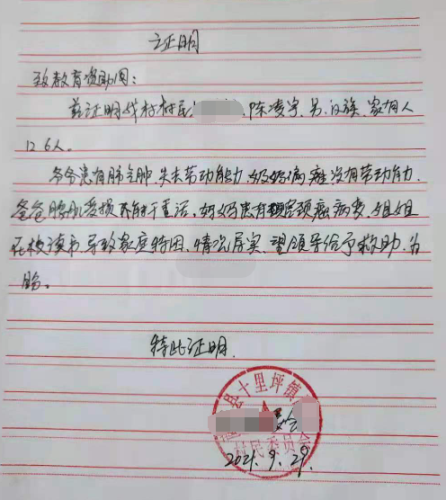 证明
致教育资助局：
兹证明我村村民 陈凌宇、男、白族、家有人
口6人。
爷爷患有肺气肿失去劳动能力.奶奶病症没有劳动能力.
爸爸腰肌受损不能干重活，妈妈患有宫颈癌病变，姐姐
在校读书导致家庭特困、情况属实、望领导给予救助.为
盼。
特此证明.
县十里坪镇
村民委员会
2021.9.29.